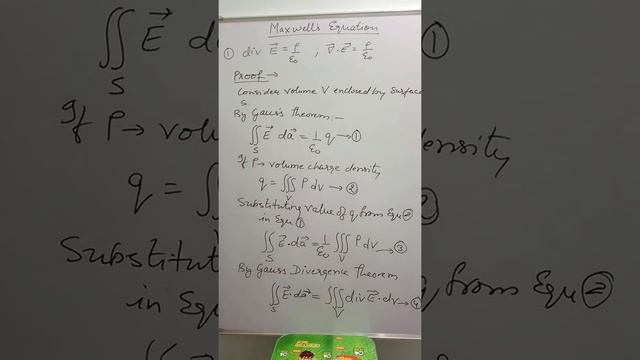 Maxwell's Equation
① div E⃗ = ρ/ε₀ ; ∇⃗·E⃗ = ρ/ε₀
Proof →
Consider volume V enclosed by Surface
S.
By Gauss Theorem:-
∬ₛ E⃗ da⃗ = 1/ε₀ q → ①
If ρ → volume charge density
q = ∭ᵥ ρ dv → ②
Substituting value of q from Equ ②
in Equ ①
∬ₛ E⃗·da⃗ = 1/ε₀ ∭ᵥ ρ dv → ③
By Gauss Divergence Theorem
∬ₛ E⃗·da⃗ = ∭ᵥ div E⃗·dv → ④